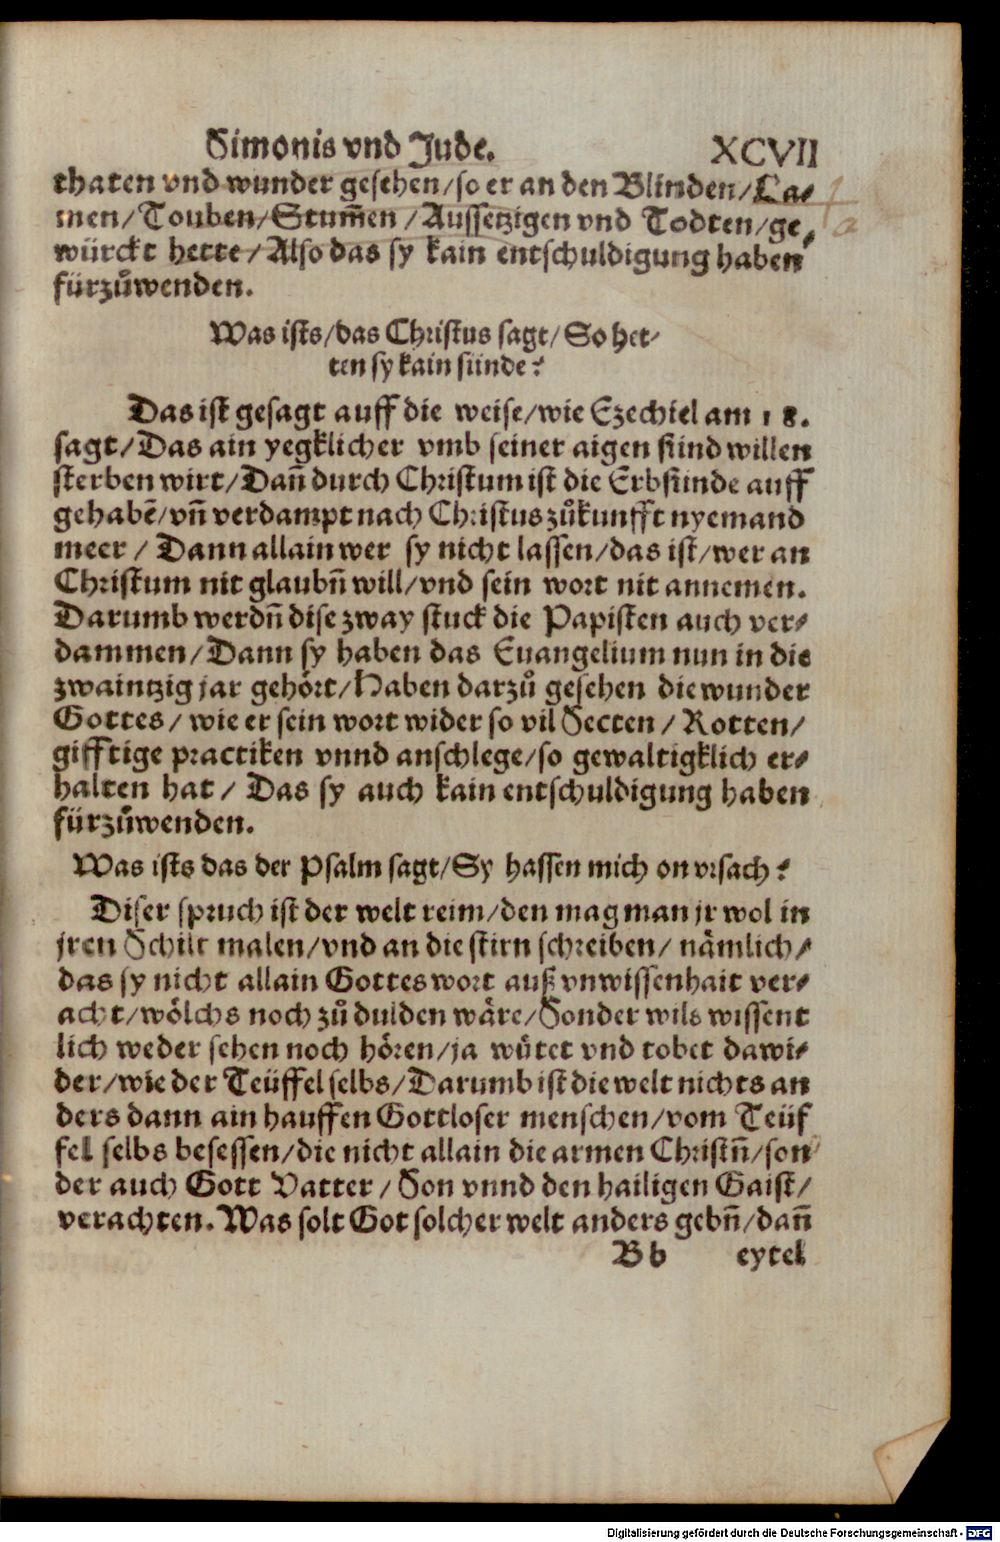 Simonis vnd Jude. XCVII
thaten vnd wunder gesehen/so er an den Blinden/La-
men/Touben/Stum̃en /Aussetzigen vnd Todten/ge-
würckt hette/Also das sy kain entschuldigung haben
fürzůwenden.
Was ists/das Christus sagt/So het-
ten sy kain sünde?
Das ist gesagt auff die weise/wie Ezechiel am 18.
sagt/Das ain yegklicher vmb seiner aigen sünd willen
sterben wirt/Dañ durch Christum ist die Erbsünde auff
gehabē/vñ verdampt nach Christus zůkunfft nyemand
meer / Dann allain wer sy nicht lassen/das ist/wer an
Christum nit glaubñ will/vnd sein wort nit annemen.
Darumb werdñ dise zway stuck die Papisten auch ver-
dammen/Dann sy haben das Euangelium nun in die
zwaintzig jar gehört/Haben darzů gesehen die wunder
Gottes/ wie er sein wort wider so vil Secten / Rotten/
gifftige practiken vnnd anschlege/so gewaltigklich er-
halten hat / Das sy auch kain entschuldigung haben
fürzůwenden.
Was ists das der Psalm sagt/Sy hassen mich on vrsach?
Diser spruch ist der welt reim/den mag man jr wol in
jren Schilt malen/vnd an die stirn schreiben/ nämlich/
das sy nicht allain Gottes wort auß vnwissenhait ver-
acht/wölchs noch zů dulden wäre/Sonder wils wissent
lich weder sehen noch hören/ja wůtet vnd tobet dawi-
der/wie der Teüffel selbs/Darumb ist die welt nichts an
ders dann ain hauffen Gottloser menschen/vom Teüf
fel selbs besessen/die nicht allain die armen Christñ/son
der auch Gott Vatter / Son vnnd den hailigen Gaist/
verachten. Was solt Got solcher welt anders gebñ/dañ
Bb eytel
Digitalisierung gefördert durch die Deutsche Forschungsgemeinschaft - DFG